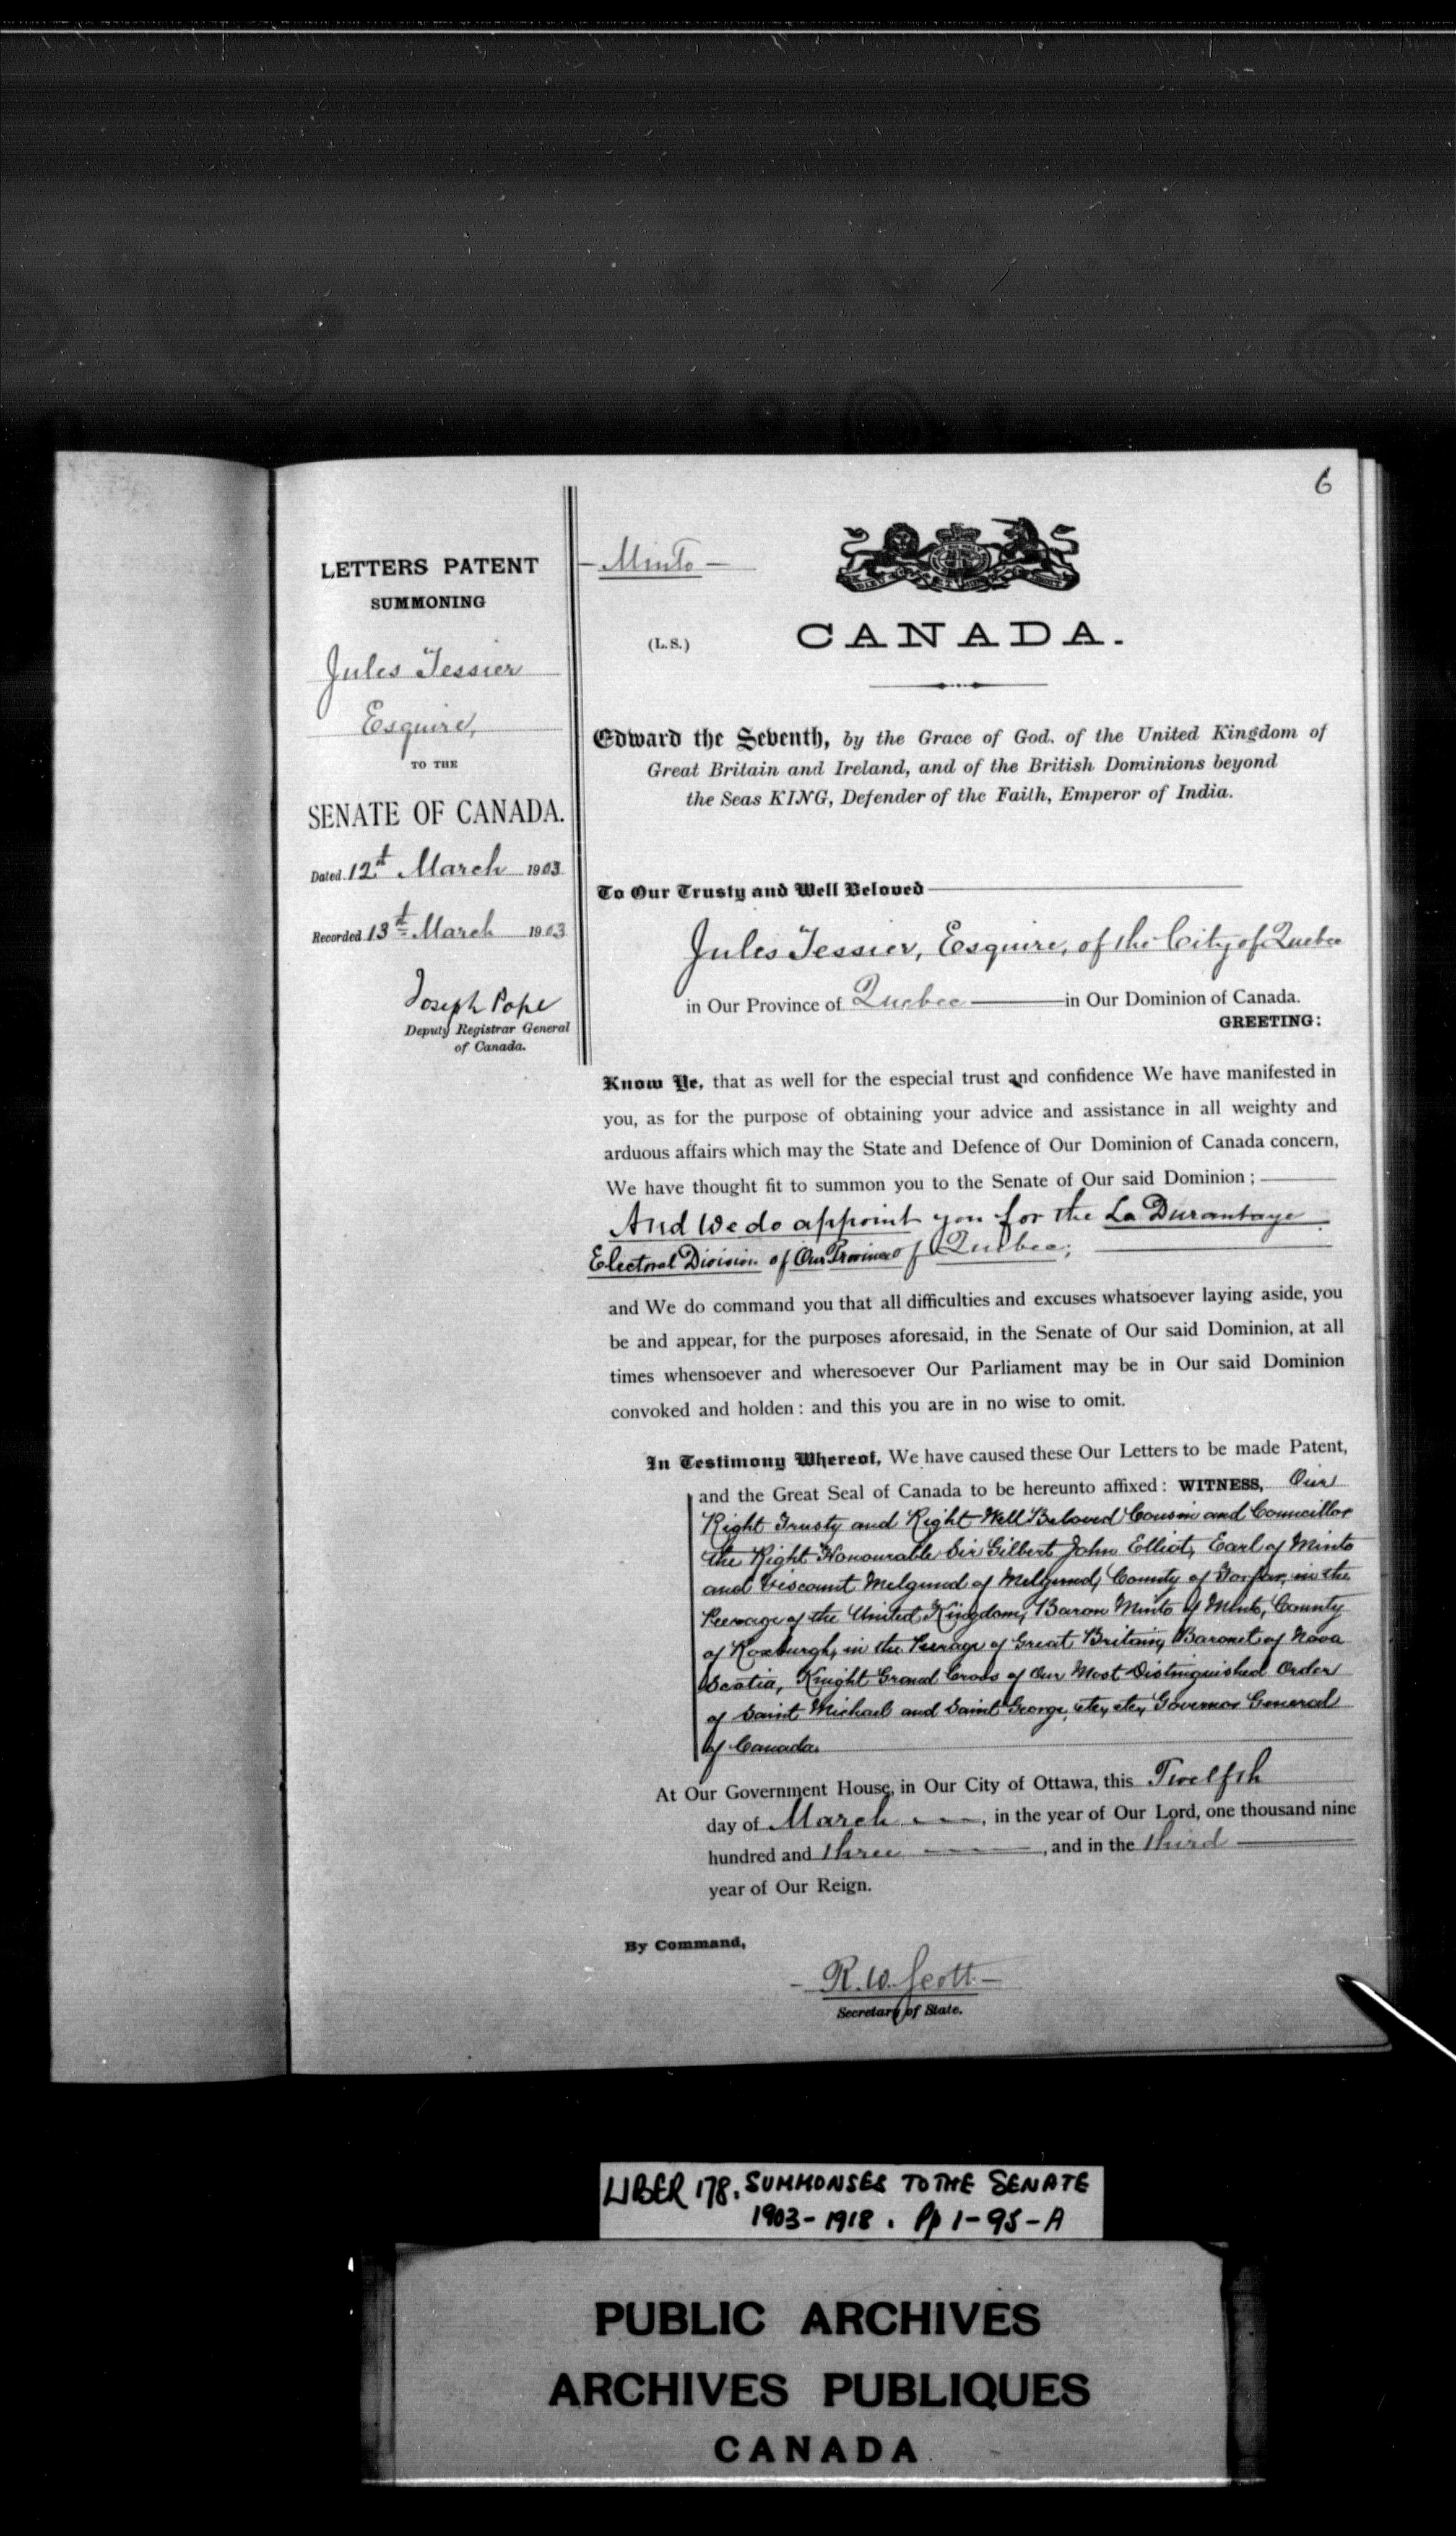 6
LETTERS PATENT
SUMMONING
Jules Tessier
Esquire,
TO THE
SENATE OF CANADA.
Dated 12th March 1903
Recorded 13th March 1903
Joseph Pope
Deputy Registrar General
of Canada.
- Minto -
(L.S.)
CANADA.
Edward the Seventh, by the Grace of God, of the United Kingdom of
Great Britain and Ireland, and of the British Dominions beyond
the Seas KING, Defender of the Faith, Emperor of India.
To Our Trusty and Well Beloved
Jules Tessier, Esquire, of the City of Quebec
in Our Province of Quebec in Our Dominion of Canada.
GREETING:
Know Ye, that as well for the especial trust and confidence We have manifested in
you, as for the purpose of obtaining your advice and assistance in all weighty and
arduous affairs which may the State and Defence of Our Dominion of Canada concern,
We have thought fit to summon you to the Senate of Our said Dominion;
And We do appoint you for the La Durantaye
Electoral Division of Our Province of Quebec;
and We do command you that all difficulties and excuses whatsoever laying aside, you
be and appear, for the purposes aforesaid, in the Senate of Our said Dominion, at all
times whensoever and wheresoever Our Parliament may be in Our said Dominion
convoked and holden: and this you are in no wise to omit.
In Testimony Whereof, We have caused these Our Letters to be made Patent,
and the Great Seal of Canada to be hereunto affixed: WITNESS, Our
Right Trusty and Right Well Beloved Cousin and Councillor
the Right Honourable Sir Gilbert John Elliot, Earl of Minto
and Viscount Melgund of Melgund, County of Forfar, in the
Peerage of the United Kingdom, Baron Minto of Minto, County
of Roxburgh, in the Peerage of Great Britain, Baronet of Nova
Scotia, Knight Grand Cross of Our Most Distinguished Order
of Saint Michael and Saint George, etc., etc., Governor General
of Canada.
At Our Government House, in Our City of Ottawa, this Twelfth
day of March, in the year of Our Lord, one thousand nine
hundred and three, and in the third
year of Our Reign.
By Command,
- R. W. Scott -
Secretary of State.
LIBER 178. SUMMONSES TO THE SENATE
1903-1918. Pp 1-95-A
PUBLIC ARCHIVES
ARCHIVES PUBLIQUES
CANADA